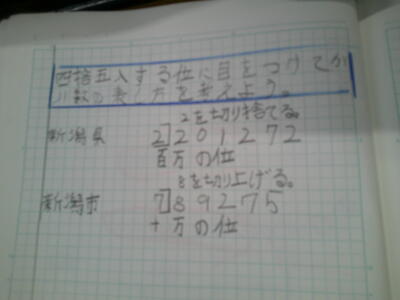 四捨五入する位に目をつけてが
い数の表し方を考えよう。
2を切り捨てる。
新潟県 2]201272
百万の位
8を切り上げる。
新潟市 7]89275
十万の位